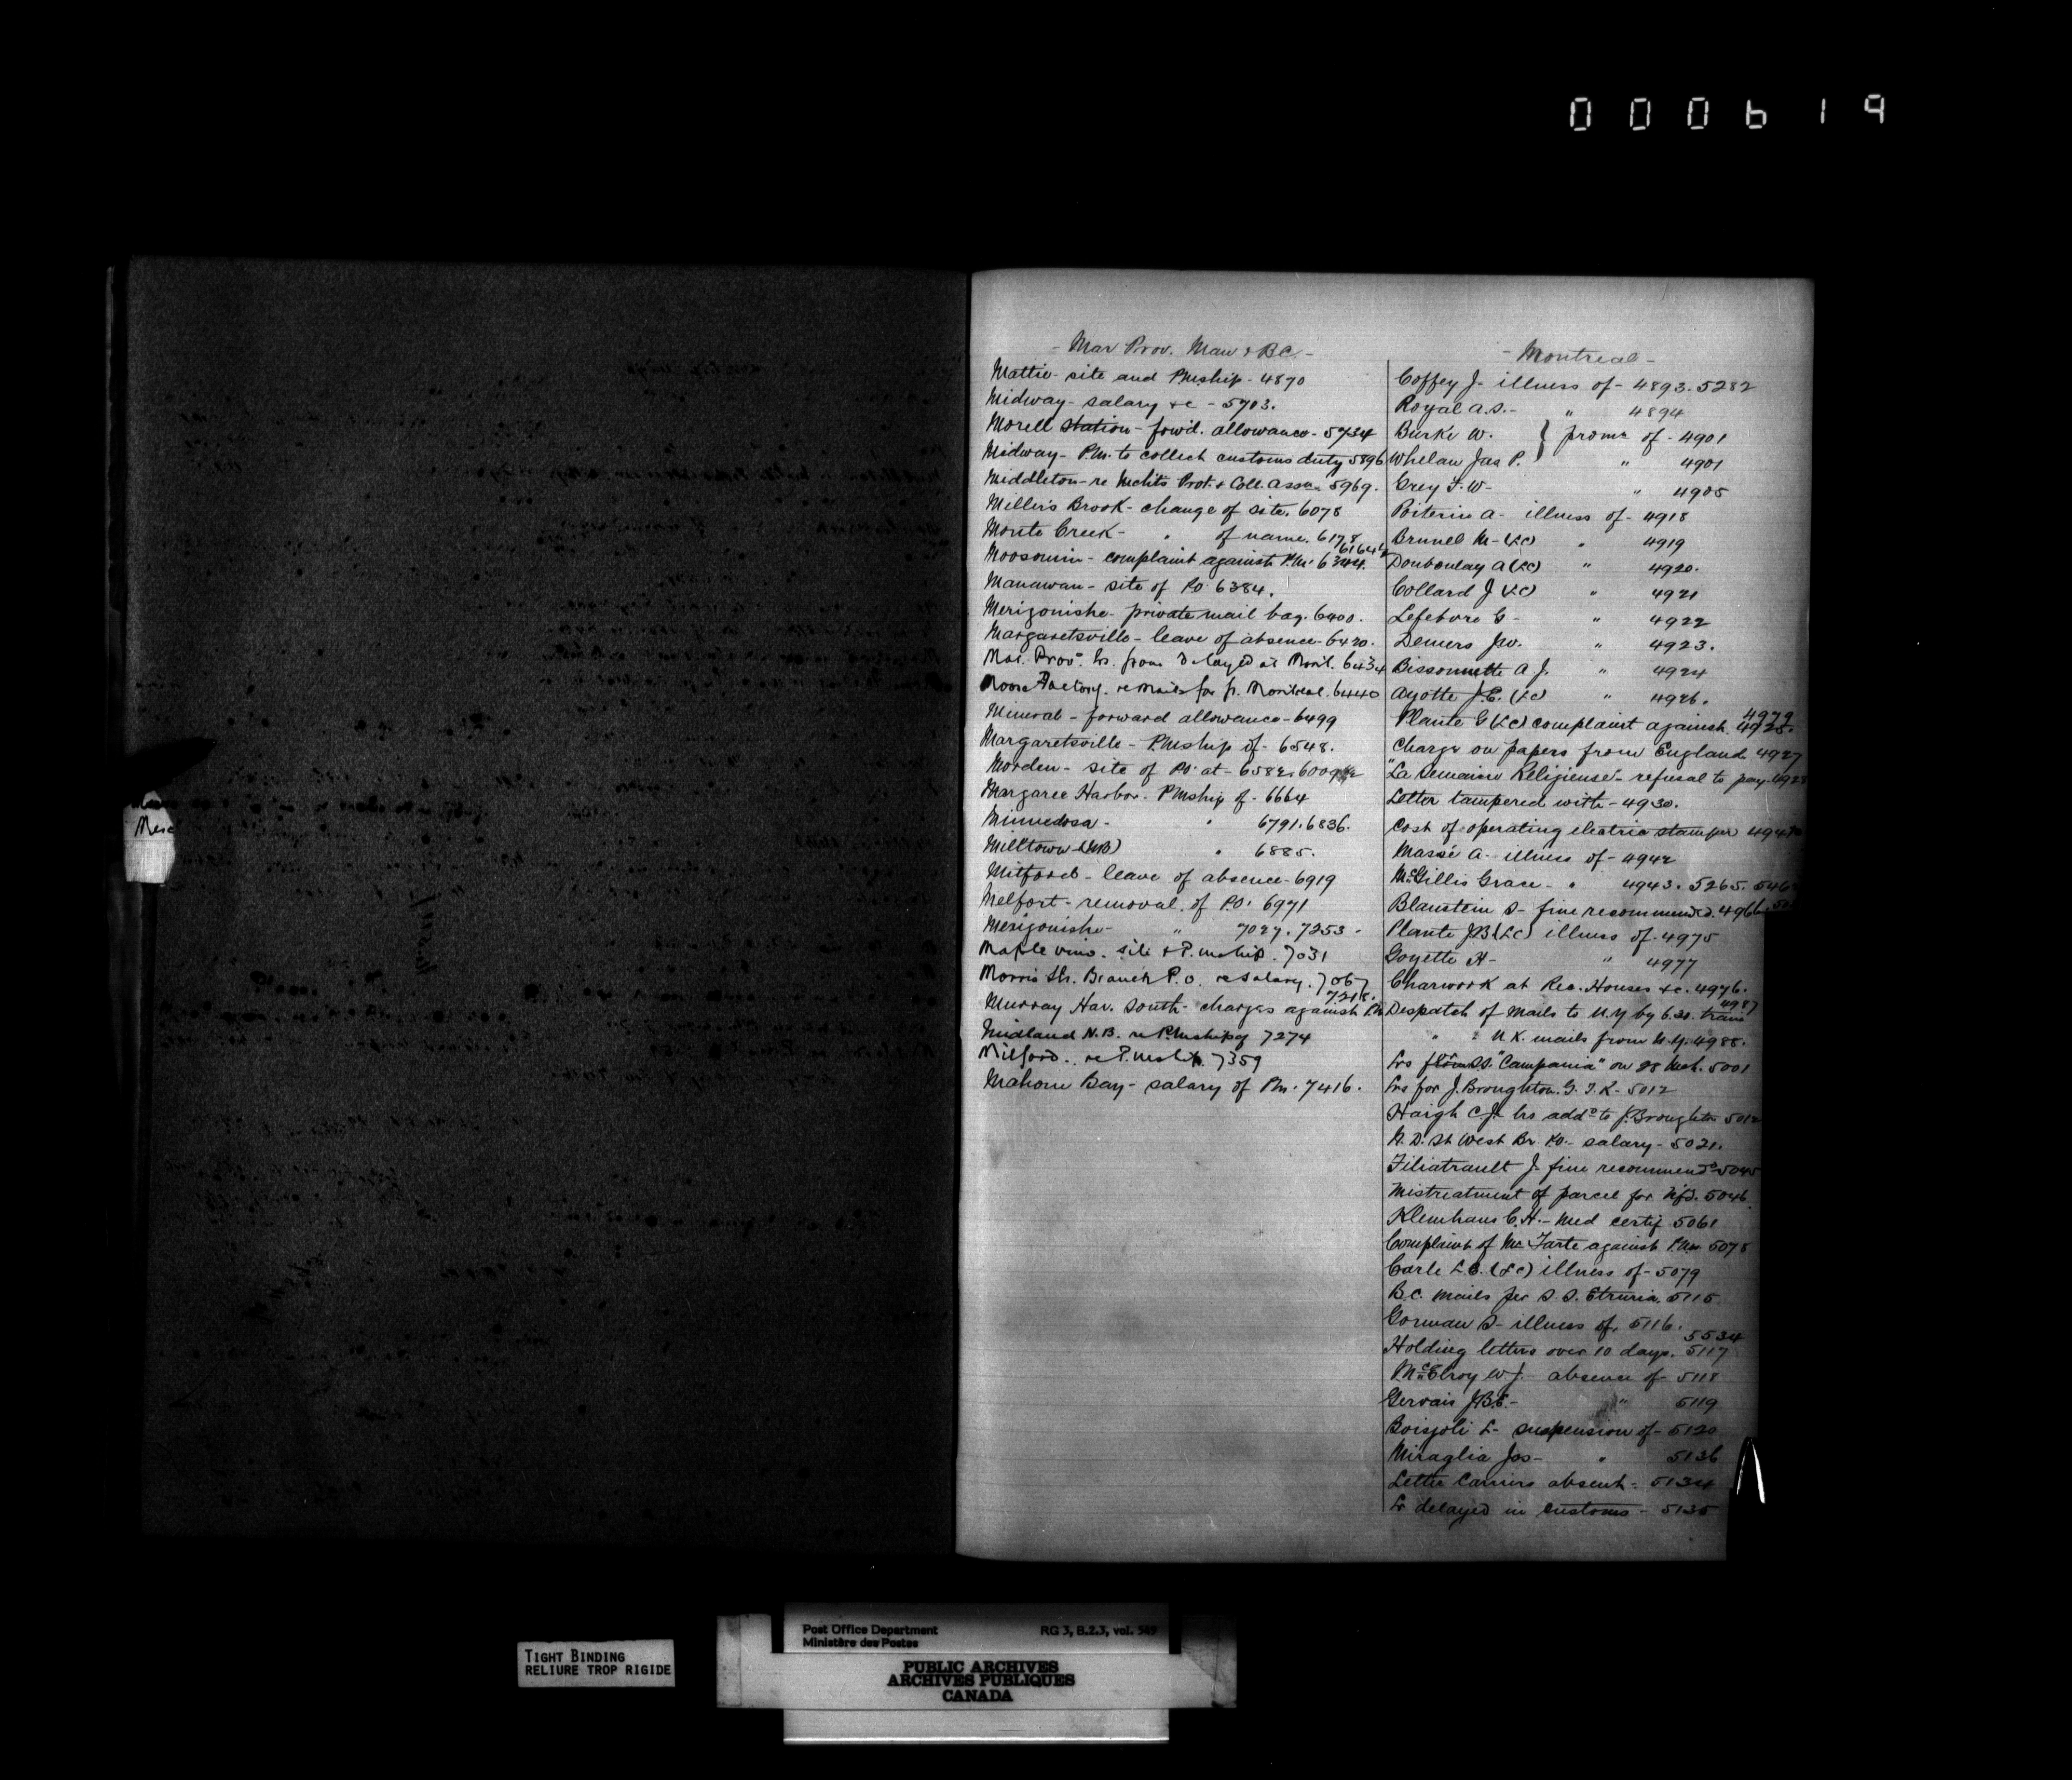 000619
- Mar Prov. Man & B.C. -
Mattie - site and PMship - 4870
Midway - salary &c - 5703.
Morell station - forwd. allowance - 5734
Midway - P.M. to collect customs duty 5896
Middleton - re Mchts Prot. & Coll. Assn. 5969.
Millers Brook - change of site. 6078
Monte Creek - " of name. 6178
61644
Moosomin - complaint against P.M. 6344.
Manawan - site of PO 6384.
Merigonishe - private mail bag. 6400.
Margaretsville - leave of absence - 6420.
Mar. Provs. lrs. from delayed at Montl. 6434
Moose Factory. re mails for fr. Montreal. 6440
Mineral - forward allowance - 6499
Margaretsville - PMship of - 6548.
Morden - site of PO at - 6582. 6009
Margaree Harbor - PMship of - 6664
Minnedosa - " 6791. 6836.
Milltown (NB) " 6885.
Mitford - leave of absence - 6919
Melfort - removal of P.O. 6971
Merigonishe - " 7027. 7253 -
Maple vine. site & P.mship. 7031
Morris St. Branch P.O. re salary. 7067
7218.
Murray Har. South - charges against PM
Midland N.B. re PMship of 7274
Milford. re P.mship. 7359
Mahone Bay - salary of Pm. 7416.
- Montreal -
Coffey J - illness of - 4893. 5282
Royal A.S. - " 4894
Burke W. } promn of - 4901
Whelan Jas P. " 4901
Grey F. W - " 4905
Poiterin A - illness of - 4918
Brunel M - (LC) " 4919
Douboulay A (LC) " 4920.
Collard J (LC) " 4921
Lefebvre G - " 4922
Demers Jw. " 4923.
Bissonnette A J. " 4924
Ayotte J.E. (LC) " 4926.
4979
Plante G (LC) complaint against 4925.
Charge on papers from England. 4927
"La Semaine Religieuse" - refusal to pay - 4928
Letter tampered with - 4930.
Cost of operating electric stamper 494
Massé A - illness of - 4942
McGillis Grace - " 4943. 5265. 546
Blaustein S - fine recommended. 4966. 50
Plante JB (LC) illness of - 4975
Goyette H - " 4977
Charwork at Rec. Houses &c. 4976.
4987
Despatch of mails to N.Y by 6.20. train
" : U K. mails from N.Y. 4988.
Lrs from S.S. "Campania" on 28 Mch. 5001
Lrs for J. Broughton. G. T. R - 5012
Haigh C.J. lrs addd to J. Broughton 5012
N. D. St West Br. P.O. - salary - 5021.
Filiatrault J. fine recommendd - 5045
Mistreatment of parcel for Nfd. 5046
Klenhans C. H. - Med certif 5061
Complaint of Mr Tarte against P.Mr 5075
Carle L. E. (LC) illness of - 5079
B.C. Mails per S. S. Etruria. 5115
Gorman S - illness of. 5116.
5534
Holding letters over 10 days. 5117
McElroy W J. - absence of - 5118
Gervais J.B.E. - " 5119
Boisjoli L - suspension of - 5120
Miraglia Jos - " 5136
Letter Carriers absent - 5134
Lr delayed in customs - 5135
TIGHT BINDING
RELIURE TROP RIGIDE
Post Office Department RG 3, B.2.3, vol. 549
Ministère des Postes
PUBLIC ARCHIVES
ARCHIVES PUBLIQUES
CANADA